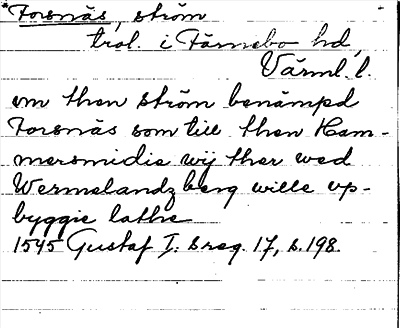 Forsnäs, ström
trol. i Färnebo hd,
Värml. l.
om then ström benämpd
Forsnäs som till then Ham-
mersmidie wij ther wed
Wermelandz berg wille op-
byggie lathe
1545 Gustaf I:s reg. 17, s. 198.